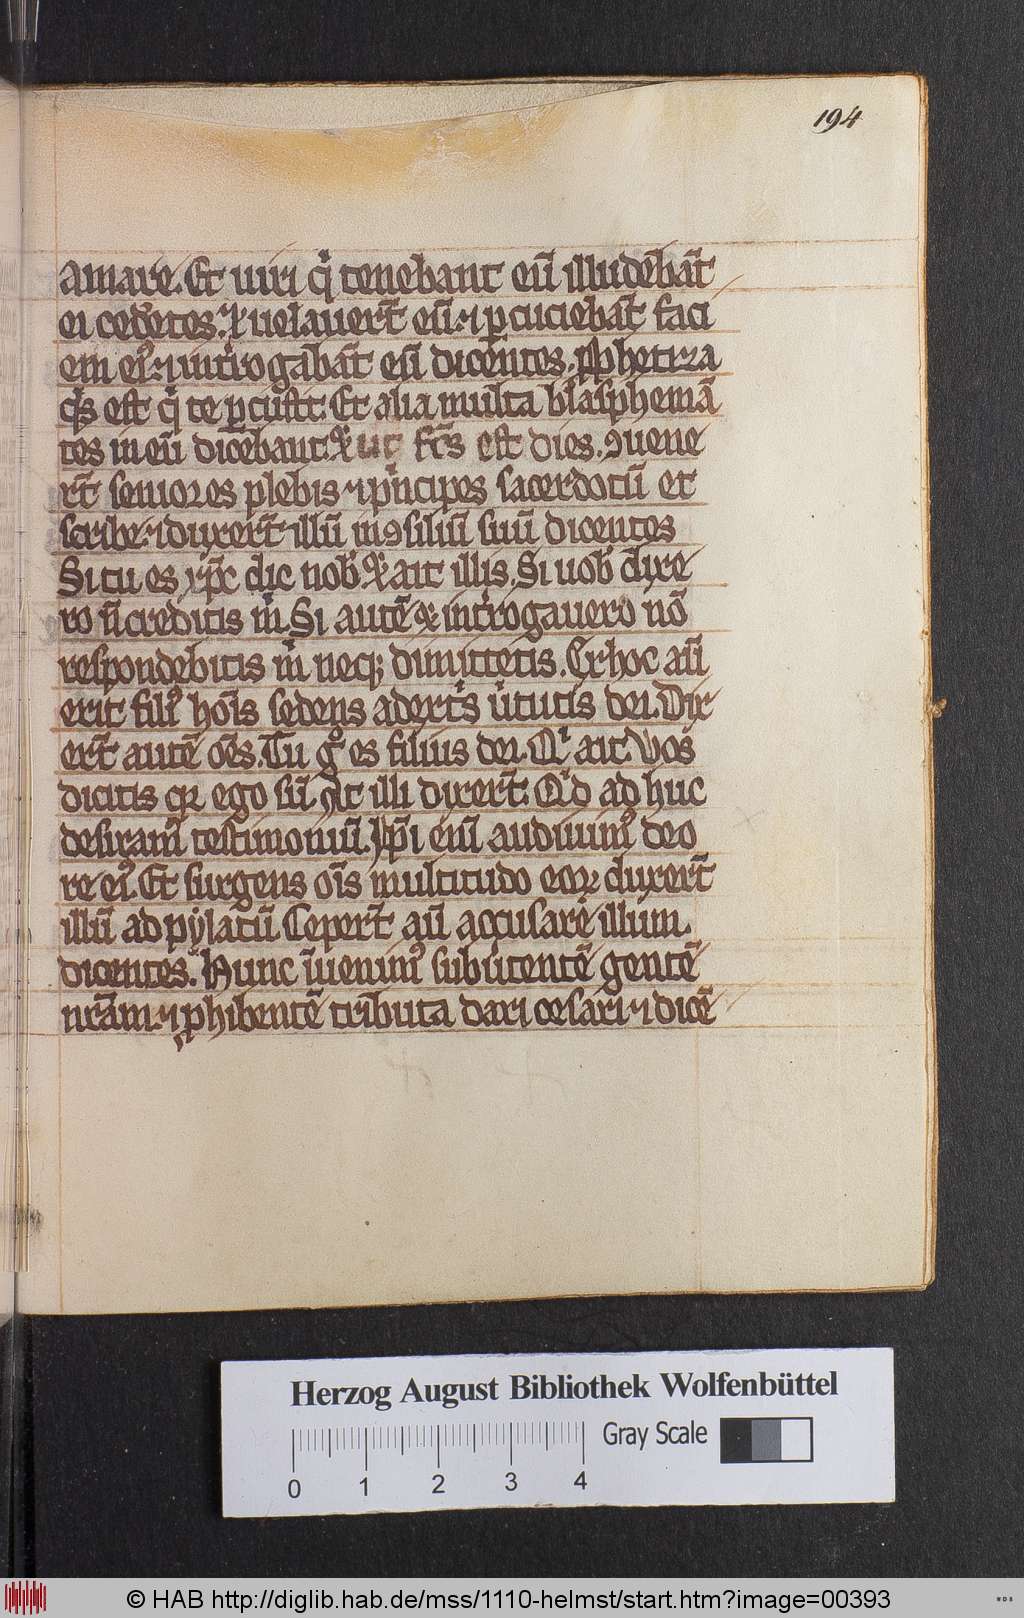 194
amare. Et uiri q̇ tenebant eū illudebāt
ei cedētes. ⁊ uelauer̄t eū. ⁊ ꝑcuciebāt faci
em eiꝰ ⁊ int̄rogabāt eū dicentes. ꝓphetiza
q̇s est q̇ te ꝑcussit. Et alia multa blasphemā
tes in eū dicebant. ⁊ ut fc̄s est dies. ꝯuene
rt̄ seniores plebis ⁊ pⁱncipes sacerdotū et
scribe. ⁊ duxer̄t illū in ꝯsiliū suū dicentes
Si tu es xp̄c dic nobꝫ. ⁊ ait illis. Si uobꝫ dixe
ro n̄ creditis m̄. Si autē ⁊ int̄rogauero nō
respondebitis m̄ neqꝫ dimittetis. Ex hoc aū
erit filiꝰ hōis sedens a dext̄s ūtutis dei. Dix
er̄t autē ōes. Tu gͦ es filius dei. Qⁱ ait. Vos
dicitis qꝛ ego sū. At illi dixer̄t. Qⁱd ad huc
desiramꝰ testimoniū. Ip̄i eni̅ audiuimꝰ de o
re eiꝰ. Et surgens ōis multitudo eoꝝ duxer̄t
illū ad pylatū. Ceper̄t aū accusare illum
dicentes. Hunc īuenimꝰ subūtentē gentē
nr̄am. ⁊ ꝓhibentē tributa dari cesari ⁊ dicē
Herzog August Bibliothek Wolfenbüttel
Gray Scale
0 1 2 3 4
© HAB http://diglib.hab.de/mss/1110-helmst/start.htm?image=00393